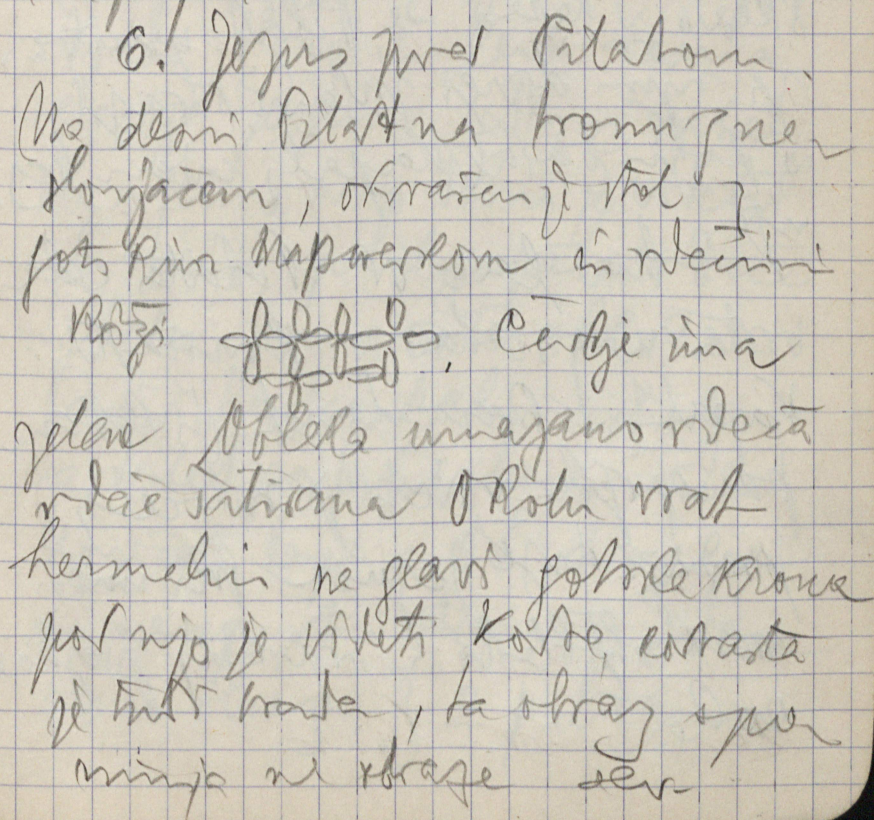 6. Jezus pred Pilatom.
Na desni Pilat na tronu z
slonjačem, okrašen je stol z
gotskim in rdečimi
Križi. Čevlje ima
zelene Obleka umazano rdeča
rdeče šatirana Okoli vrat
hermelin na glavi gotska krona
pod njo je videti kostě, kodrasta
je tudi brada, ta obraz spo
minja na obraze sev-